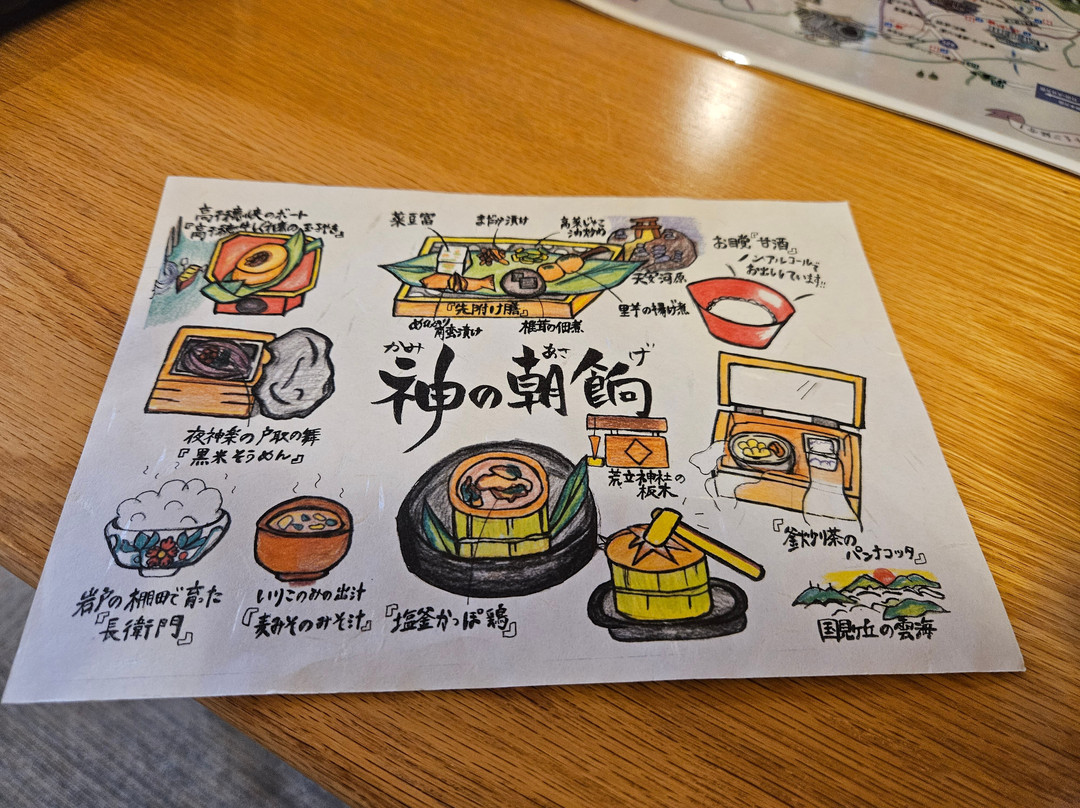 高千穂峡のボート
菜豆富
高菜じゃこ
油炒め
お目覚『甘酒』
ノンアルコールで
お出ししています!!
天安河原
『先附け膳』
里芋の揚げ煮
椎茸の佃煮
かみ あさ げ
神の朝餉
夜神楽の戸取の舞
『黒米そうめん』
荒立神社の
板木
『釜炒り茶の
パンナコッタ』
岩戸の棚田で育った
『長衛門』
いりこのみの出汁
『麦みそのみそ汁』
『塩釜かっぽ鶏』
国見ヶ丘の雲海